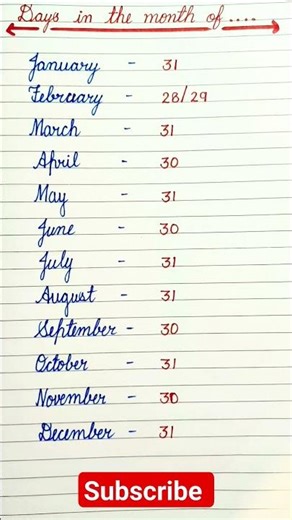 Days in the month of....
January - 31
February - 28/29
March - 31
April - 30
May - 31
June - 30
July - 31
August - 31
September - 30
October - 31
November - 30
December - 31
Subscribe